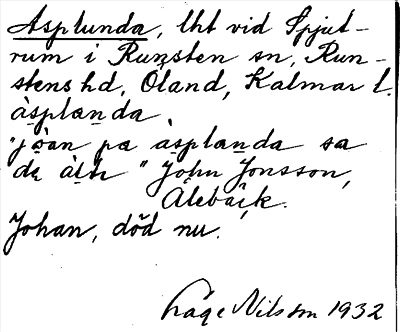 Asplunda, lht vid Spjut-
rum i Runsten sn, Run-
stens hd, Öland, Kalmar l.
àsplạnda
"jöan pa àsplạnda sa
dạ àlti" John Jonsson,
Ålebäck.
Johan, död nu.
Låge Nilsson 1932